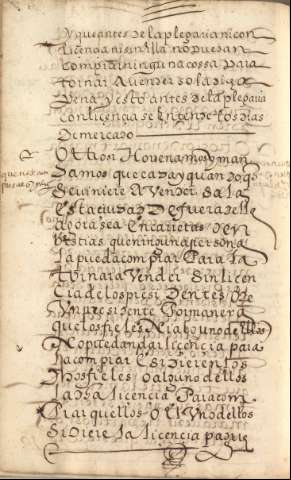 y que antes de la plegaria ni con
licencia ni sin ella no puedan
comprar ninguna cossa para
tornar a vender so la dicha
pena y esto antes de la plegaria
con licencia se entiende los dias
de mercado
Otrosi hordenamos y man
damos que cada y quando q
se viniere a vender sal a
esta ciudad de fuera della
agora sea en carretas o en
bestias que ninguna persona
la pueda comprar para la
tornar a vender sin licen
cia de los presidentes o de
un presidente por manera
que los fieles ni alguno dellos
no puedan dar licencia para
la comprar e si dieren los
dhos fieles o alguno dellos
la dha licencia para com
prar quellos o el uno dellos
si diere la licencia pague